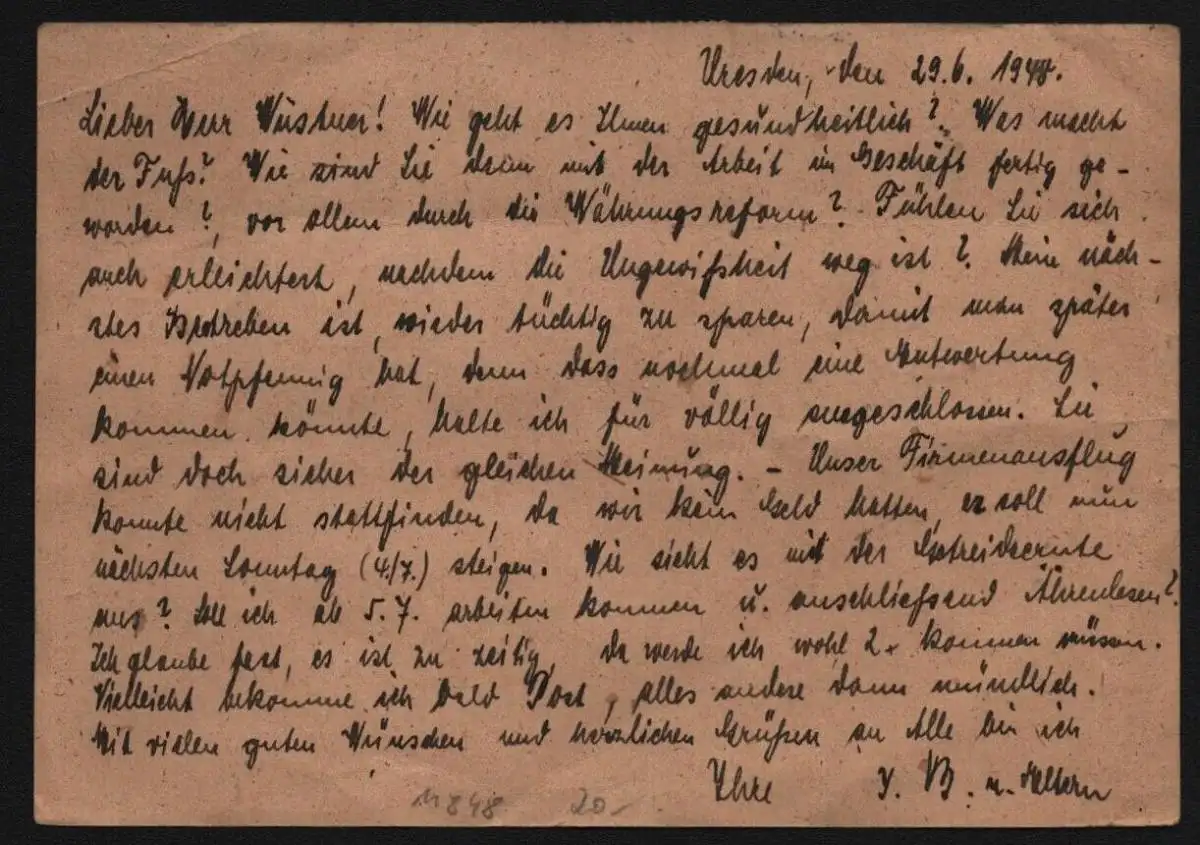 Dresden, den 29.6. 1948.
Lieber Herr Wüstner! Wie geht es Ihnen gesundheitlich? Was macht
der Fuß? Wie sind Sie denn mit der Arbeit im Geschäft fertig ge-
worden?, vor allem durch die Währungsreform? Fühlen Sie sich
auch erleichtert, nachdem die Ungewißheit weg ist? Mein näch-
stes Bestreben ist, wieder tüchtig zu sparen, damit man später
einen Notpfennig hat, denn dass nochmal eine Entwertung
kommen könnte, halte ich für völlig ausgeschlossen. Sie
sind doch sicher der gleichen Meinung. – Unser Firmenausflug
konnte nicht stattfinden, da wir kein Geld hatten, er soll nun
nächsten Sonntag (4./7.) steigen. Wie sieht es mit der Getreideernte
aus? Soll ich ab 5.7. arbeiten kommen u. anschließend Ährenlesen?
Ich glaube fast, es ist zu zeitig, da werde ich wohl 2x kommen müssen.
Vielleicht bekomme ich bald Post, alles andere dann mündlich.
Mit vielen guten Wünschen und herzlichen Grüßen an Alle bin ich
Ihre
B. u. Eltern
11848 20.-